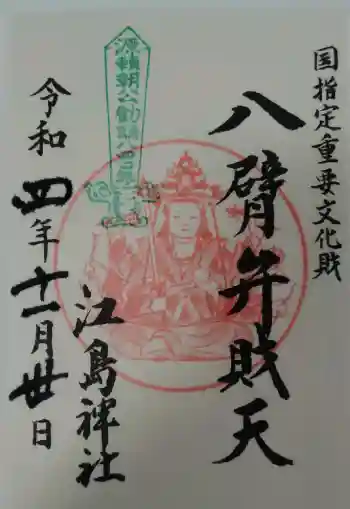 国指定重要文化財
八臂弁財天
源頼朝公勧請八百四十年
江島神社
令和四年十一月廿日